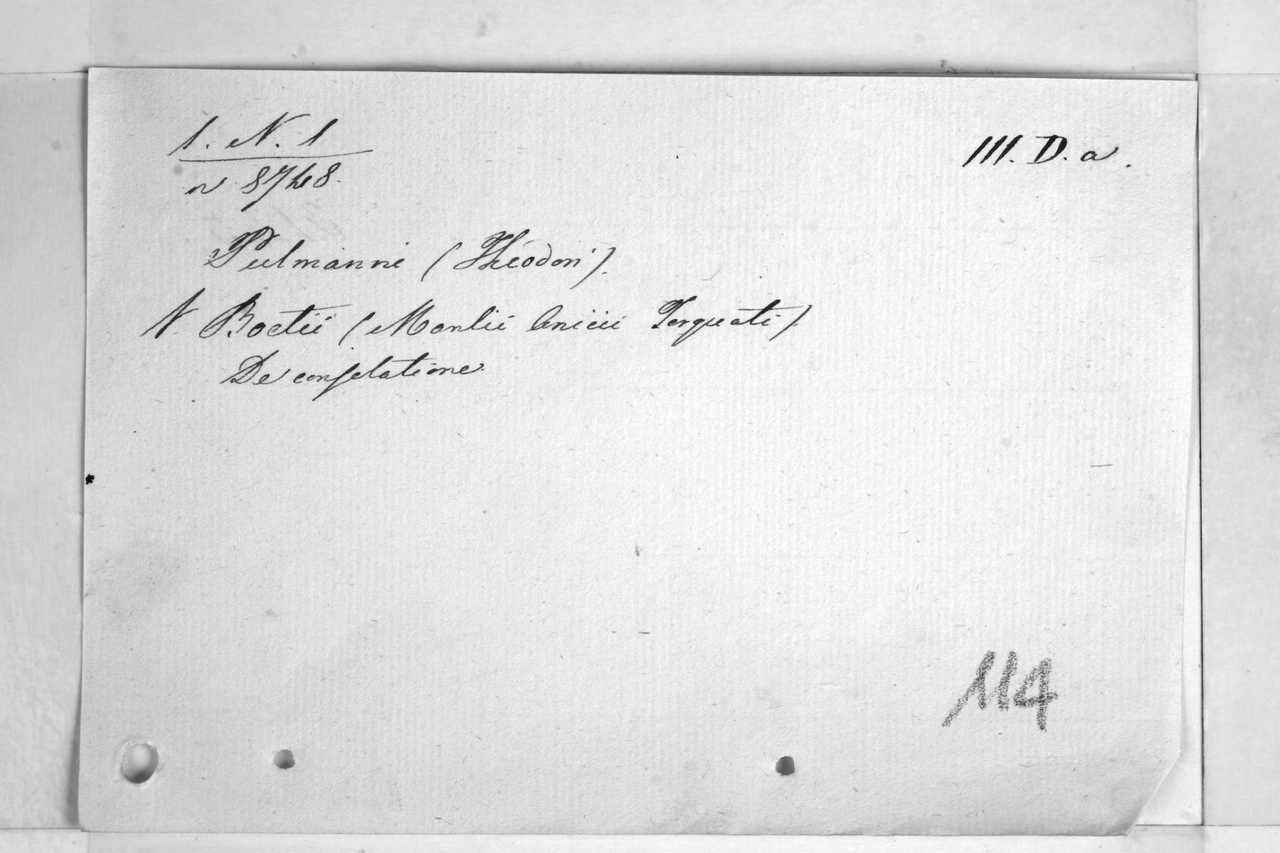 1. N. 1
n 8748.
III. D. a.
Pulmanni (Theodori).
V Boetii (Manlii Anicii Torquati)
De consolatione
114